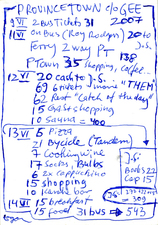 PROVINCETOWN c/o GEE
9 VI 2 BUS TIX TS 31 2007
11 VI on Bus (Roy Rodgers) 20 to
Ferry 2 way PT J.S.
P Town 35 shopping, coffee.. 138
12 VI 20 cash to J.S.
69 6 nites + movie "THEM"
62 Rest "Catch of the day"
15 Gifts + shopping
10 Sauna = 400
13 VI 5 Pizza
21 Bicycle (Tandem)
7 Cooking wine
17 Socks, Bulbs
6 2x cappuchino
15 shopping
10 Handle bar
14 VI 15 breakfast
15 food 31 bus = 543
J.S:
Boobs 22
Cap 15
J.S:
= 309